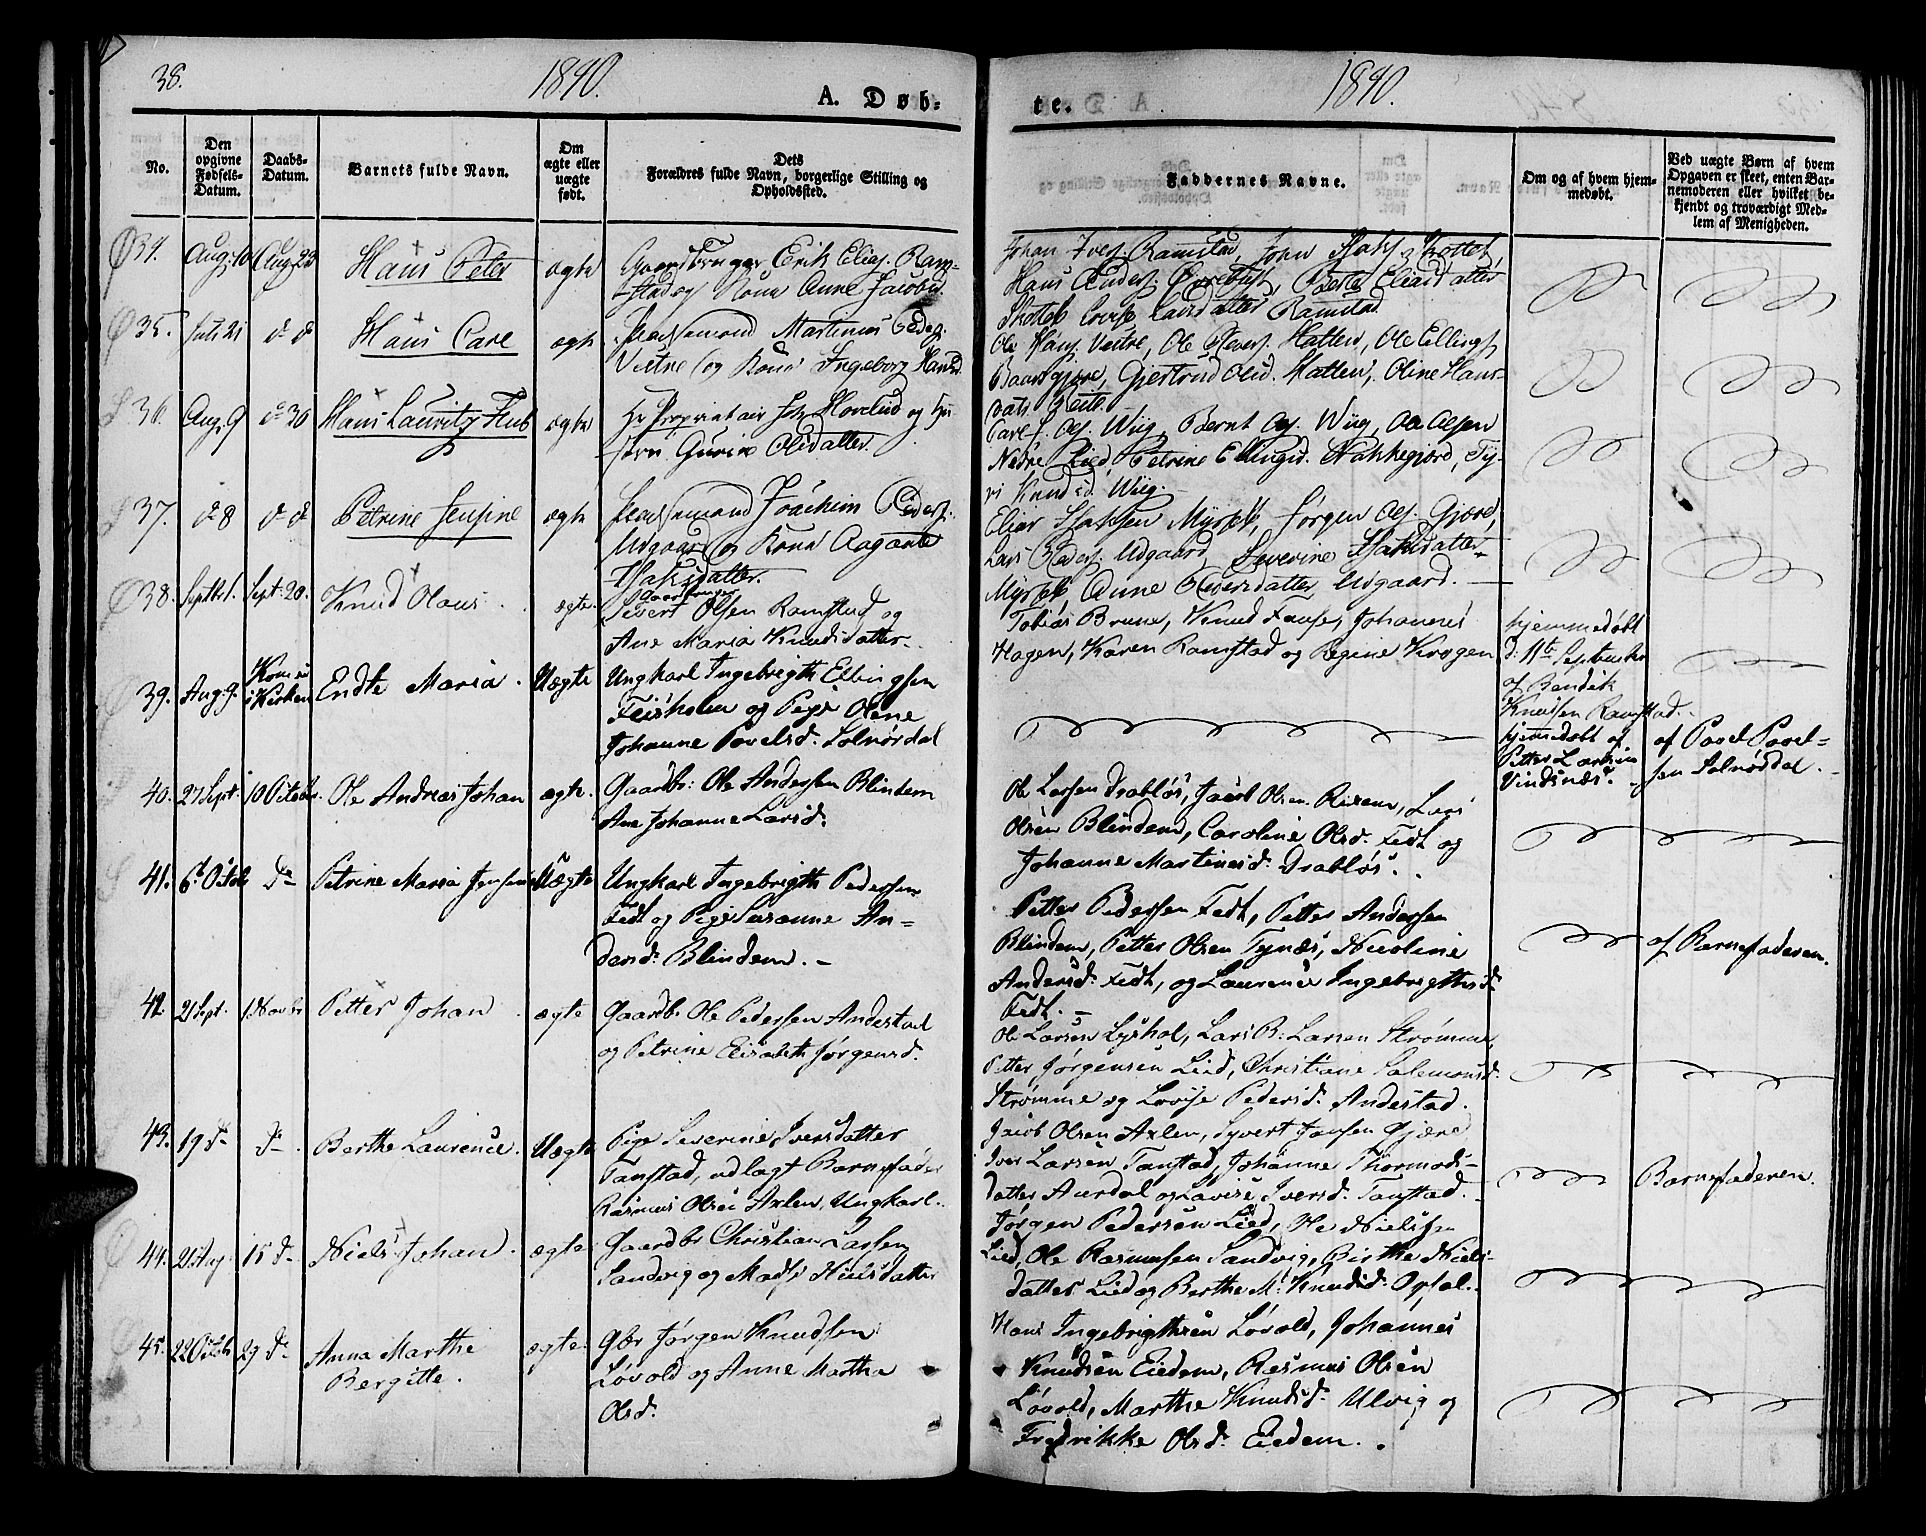 38.
1840.
A. Døb-
te.
1840.
No.
Den opgivne Fødsels-Datum.
Daabs-Datum.
Barnets fulde Navn.
Om ægte eller uægte født.
Dets
Forældres fulde Navn, borgerlige Stilling og
Opholdssted.
Faddernes Navne.
Om og af hvem hjem-
medøbt.
Ved uægte Børn af hvem
Opgaven er skeet, enten Bar-
nemoderen eller hvilket be-
kjendt og troværdigt Med-
lem af Menigheden.
34. Aug: 10 Aug 23 Hans Peter ægte
Gaardbruger Erik Elias. Ram-
stad og Kone Anne Jacobsd.
Johan Ivers. Ramstad, John
Hans
Ramstad
35. Juli 21 d° d° Hans Carl ægte
Pladsemand Martinus Peders.
Vestre og Kone Ingeborg Hansd.
Ole Hans. Vestre, Ole Hatten, Ole Ellings.
Gjertrud Olsd. Hatten, Oline Hans-
36. Aug. 9 d° 30 Hans Lauritz ægte
Hr Proprietair Hovelud og Hu-
stru Gurine Olsdatter.
Wiig, Bernt Wiig, Ole Olsen
Nedre Lied Petrine Ellingsd. Nakkegjerd, Sy-
ri Knudsd. Wiig.
37. d° 8 d° d° Petrine Jensine ægte
Pladsemand Joachim Peders.
Udgaard og Kone Aagaate
Isaksdatter.
Elias Isaksen Myrset, Jørgen Gjære,
Lars Peders. Udgaard, Severine Isaksdatter
Myrset Anne Udgaard.
38. Septbr 1. Sept: 20. Knud Olaus ægte.
Gaardbruger
Sivert Olsen Ramstad og
Ane Maria Knudsdatter.
Tobias Brune, Knud Johannes
Hagen, Karen Ramstad og Regine Krogen
hjemmedøbt
d: 11te September
af Bendik
Knudsen Ramstad.
39. Aug. 9. Kom ei i Kirken Endte Maria. Uægte
Ungkarl Ingebrigth Ellingsen
Feisholm og Pige Oline
Johanne Povelsd. Solnørdal
hjemmedøbt af
Petter Larsen
Vindsnæs.
af Povel Povel-
sen Solnørdal.
40. 27 Sept. 10 Octobr. Ole Andreas Johan ægte.
Gaardb: Ole Andersen Blindem
Ane Johanne Larsd.
Ole Larsen Drabløs, Jacob Olsen Rixem, Lars
Olsen Blindem, Caroline Olsd. Fedt og
Johanne Martinusd. Drabløs.
41. 6 Octob D° Petrine Maria Jensine Uægte
Ungkarl Ingebrigth Pedersen
Fedt og Pige Susanne An-
dersd. Blindem. -
Petter Pedersen Fedt, Petter Andersen
Blindem, Petter Olsen Tynæs, Nicoline
Andersd. Fedt, og Laurence Ingebrigthsd.
Fedt. -
af Barnefaderen.
42. 21 Sept. 1 Novbr Petter Johan ægte
Gaardb. Ole Pedersen Andestad
og Petrine Elisabeth Jørgensd.
Ole Larsen Lyshol, Lars B: Larsen Strømme,
Petter Jørgensen Lied, Christiane Salemonsd.
Strømme og Lovise Pedersd. Andestad.
43. 19 D° D°. Berthe Laurence. Uægte
Pige Severine Iversdatter
Tanstad, udlagt Barnefader
Rasmus Olsen Axlen, Ungkarl.
Jacob Olsen Axlen, Syvert Jansen Gjære
Iver Larsen Tanstad, Johanne Thormods-
datter Aurdal og Lovise Iversd. Tanstad.
Barnefaderen.
44. 21 Aug. 15 D° Niels Johan. ægte
Gaardb. Christian Lassen
Sandvig og Madsi Nielsdatter
Jørgen Pedersen Lied, Ole Nielsen
Lied, Ole Rasmussen Sandvig, Birthe Niels-
datter Lied og Berthe M: Knudsd. Opsal.
45. 22 Octob 29 D° Anna Marthe
Bergitte. ægte.
Gbr Jørgen Knudsen
Løvold og Anne Martha
Olsd.
Hans Ingebrigthsen Løvold, Johannes
Knudsen Eidem, Rasmus Olsen
Løvold, Marthe Knudsd. Ulvig og
Fredrikke Olsd. Eidem.